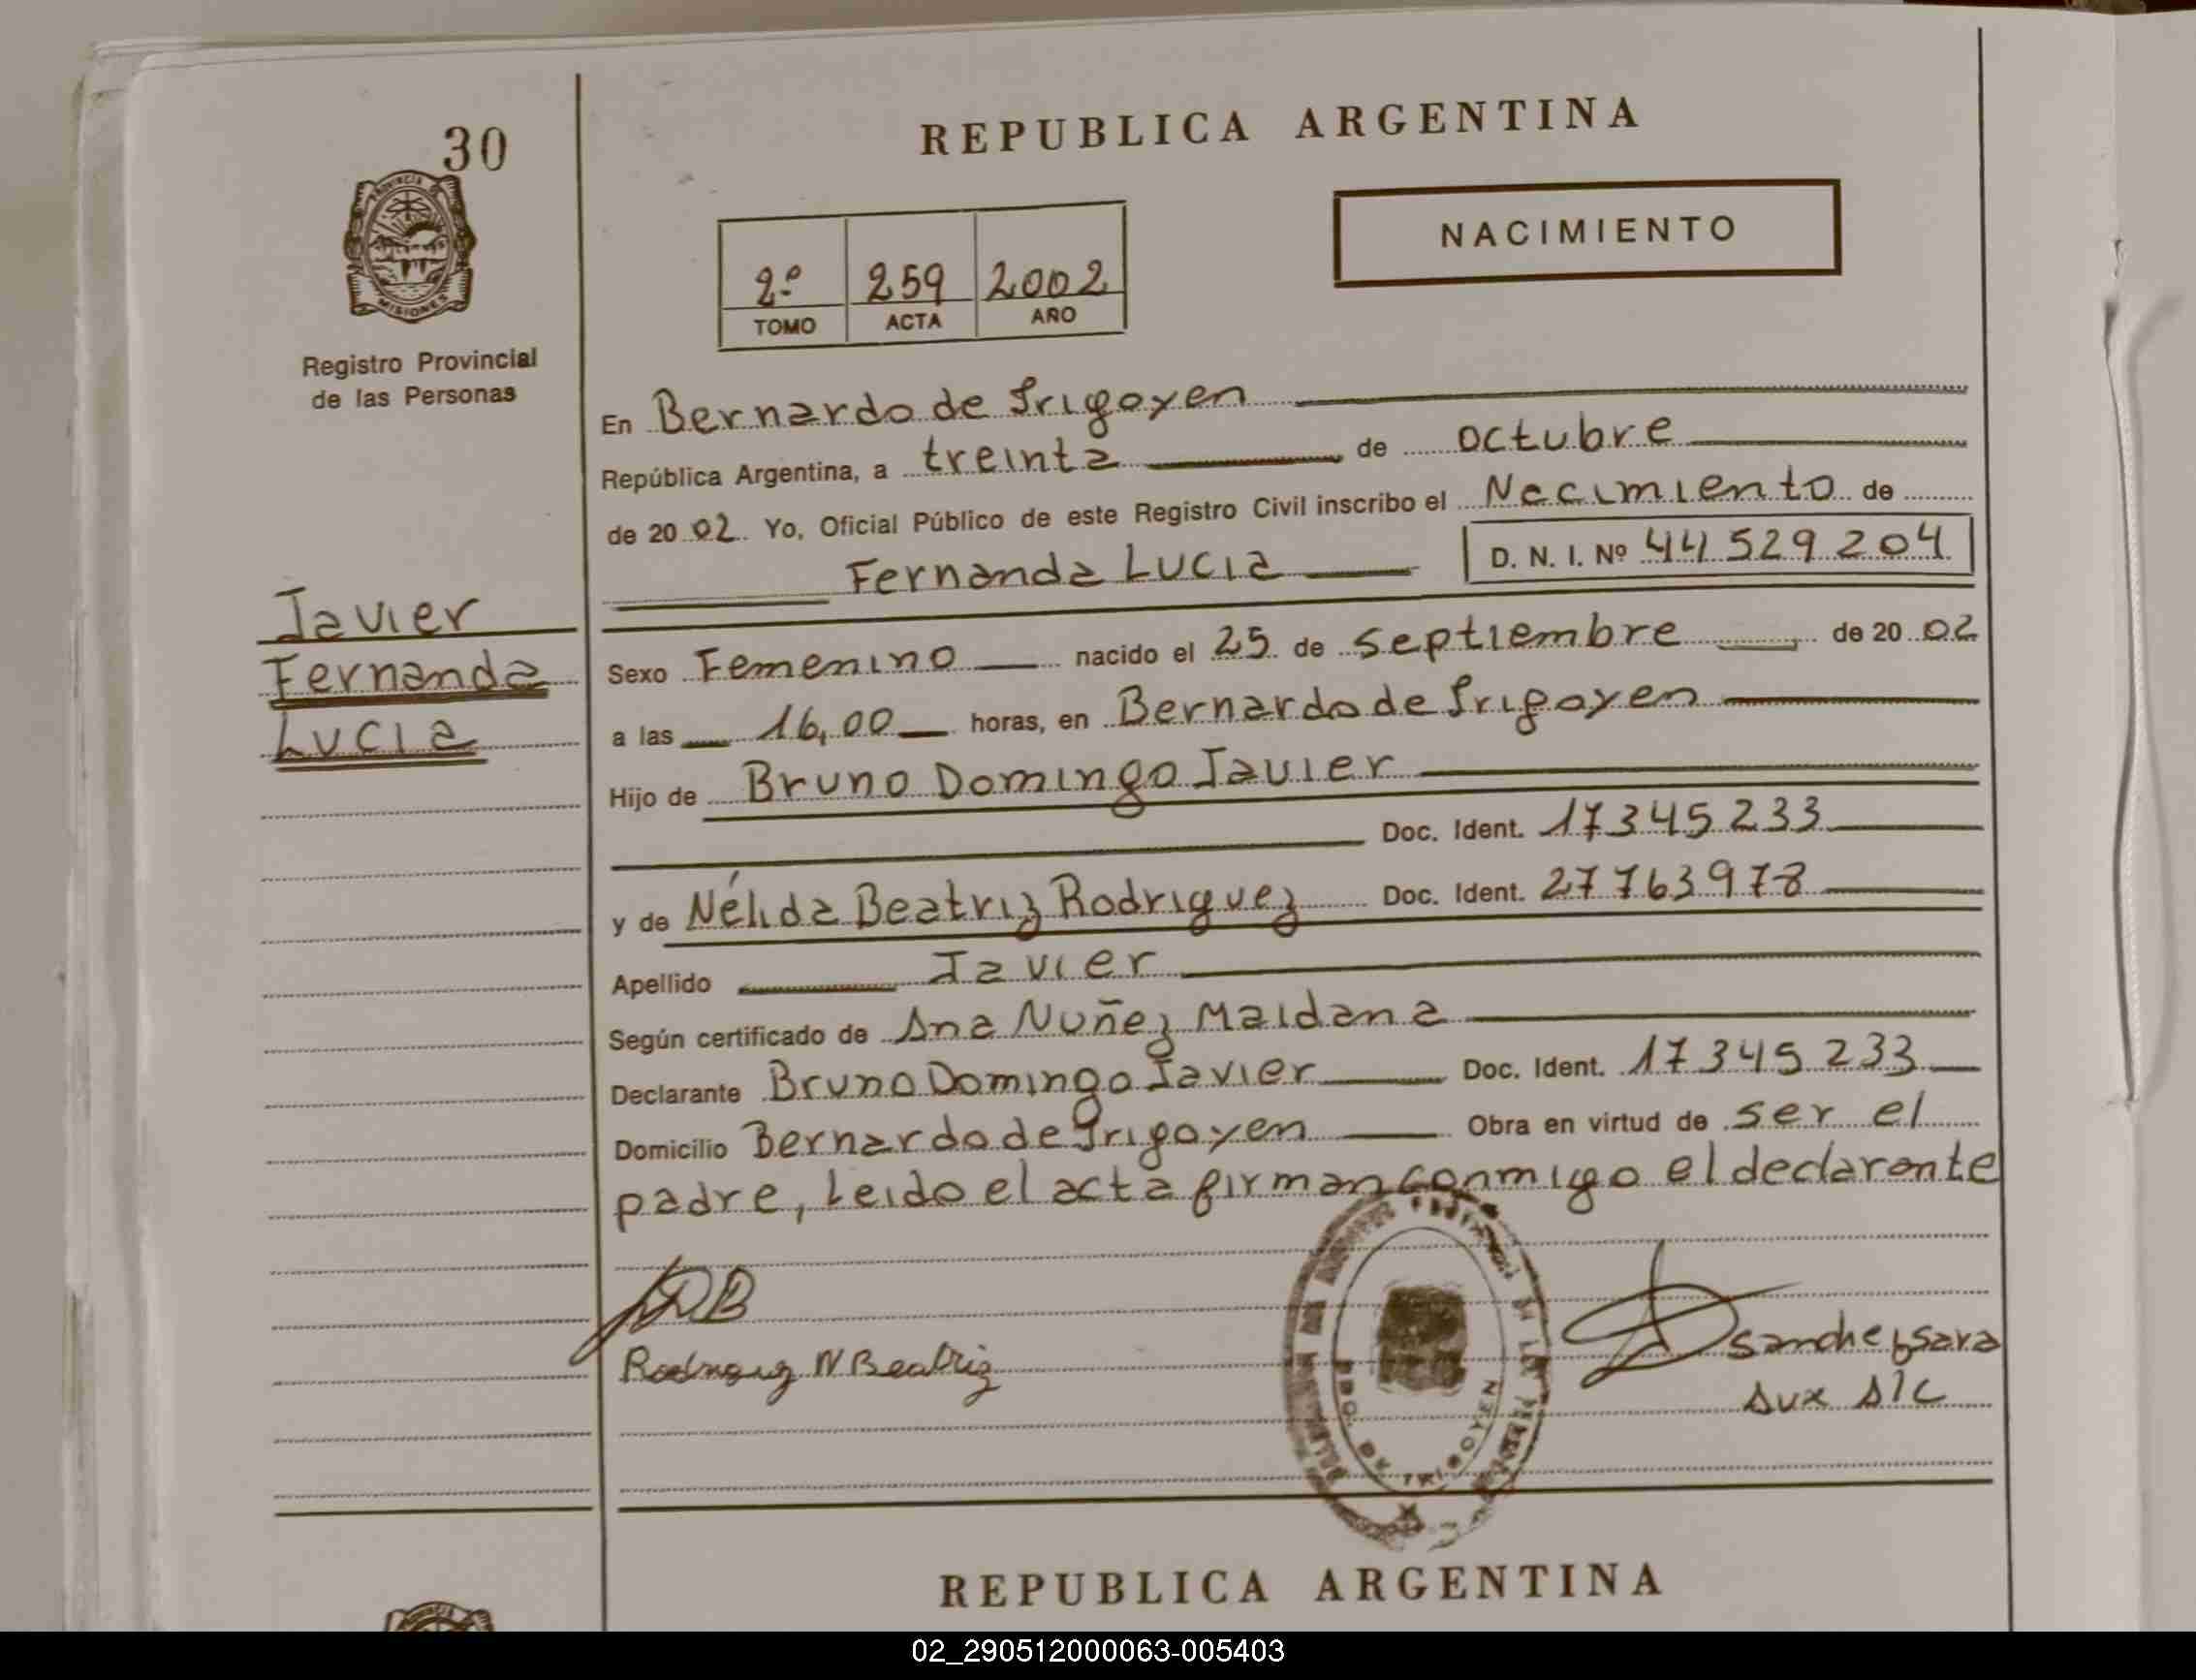 30
PROVINCIA DE
MISIONES
Registro Provincial
de las Personas
Javier
Fernanda
Lucia
REPUBLICA ARGENTINA
NACIMIENTO
2º 259 2002
TOMO ACTA AÑO
En Bernardo de Irigoyen
República Argentina, a treinta de octubre
de 2002. Yo, Oficial Público de este Registro Civil inscribo el Nacimiento de
Fernanda Lucia D. N. I. Nº 44529204
Sexo Femenino nacido el 25 de septiembre de 2002
a las 16,00 horas, en Bernardo de Irigoyen
Hijo de Bruno Domingo Javier
Doc. Ident. 17345233
y de Nélida Beatriz Rodriguez Doc. Ident. 27763978
Apellido Javier
Según certificado de Ana Nuñez Maidana
Declarante Bruno Domingo Javier Doc. Ident. 17345233
Domicilio Bernardo de Irigoyen Obra en virtud de ser el
padre, Leido el acta firman conmigo el declarante
Rodriguez N Beatriz
BDO. DE IRIGOYEN
Sanchez Sara
Aux
REPUBLICA ARGENTINA
02_290512000063-005403